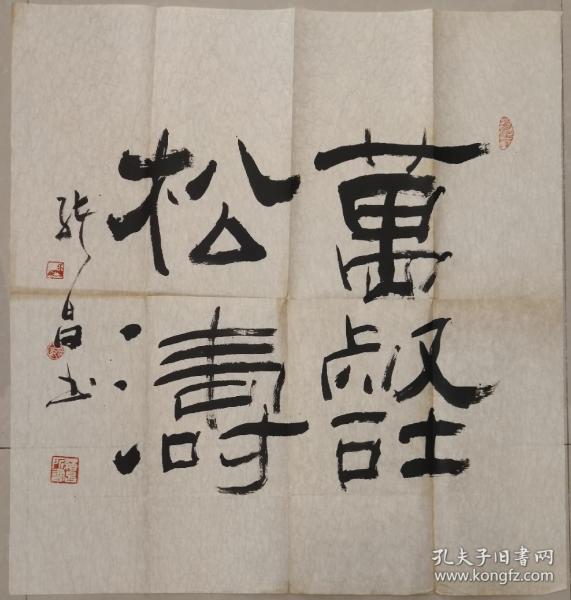 萬壑
松濤
張昌書
孔夫子旧书网
www.kongfz.com